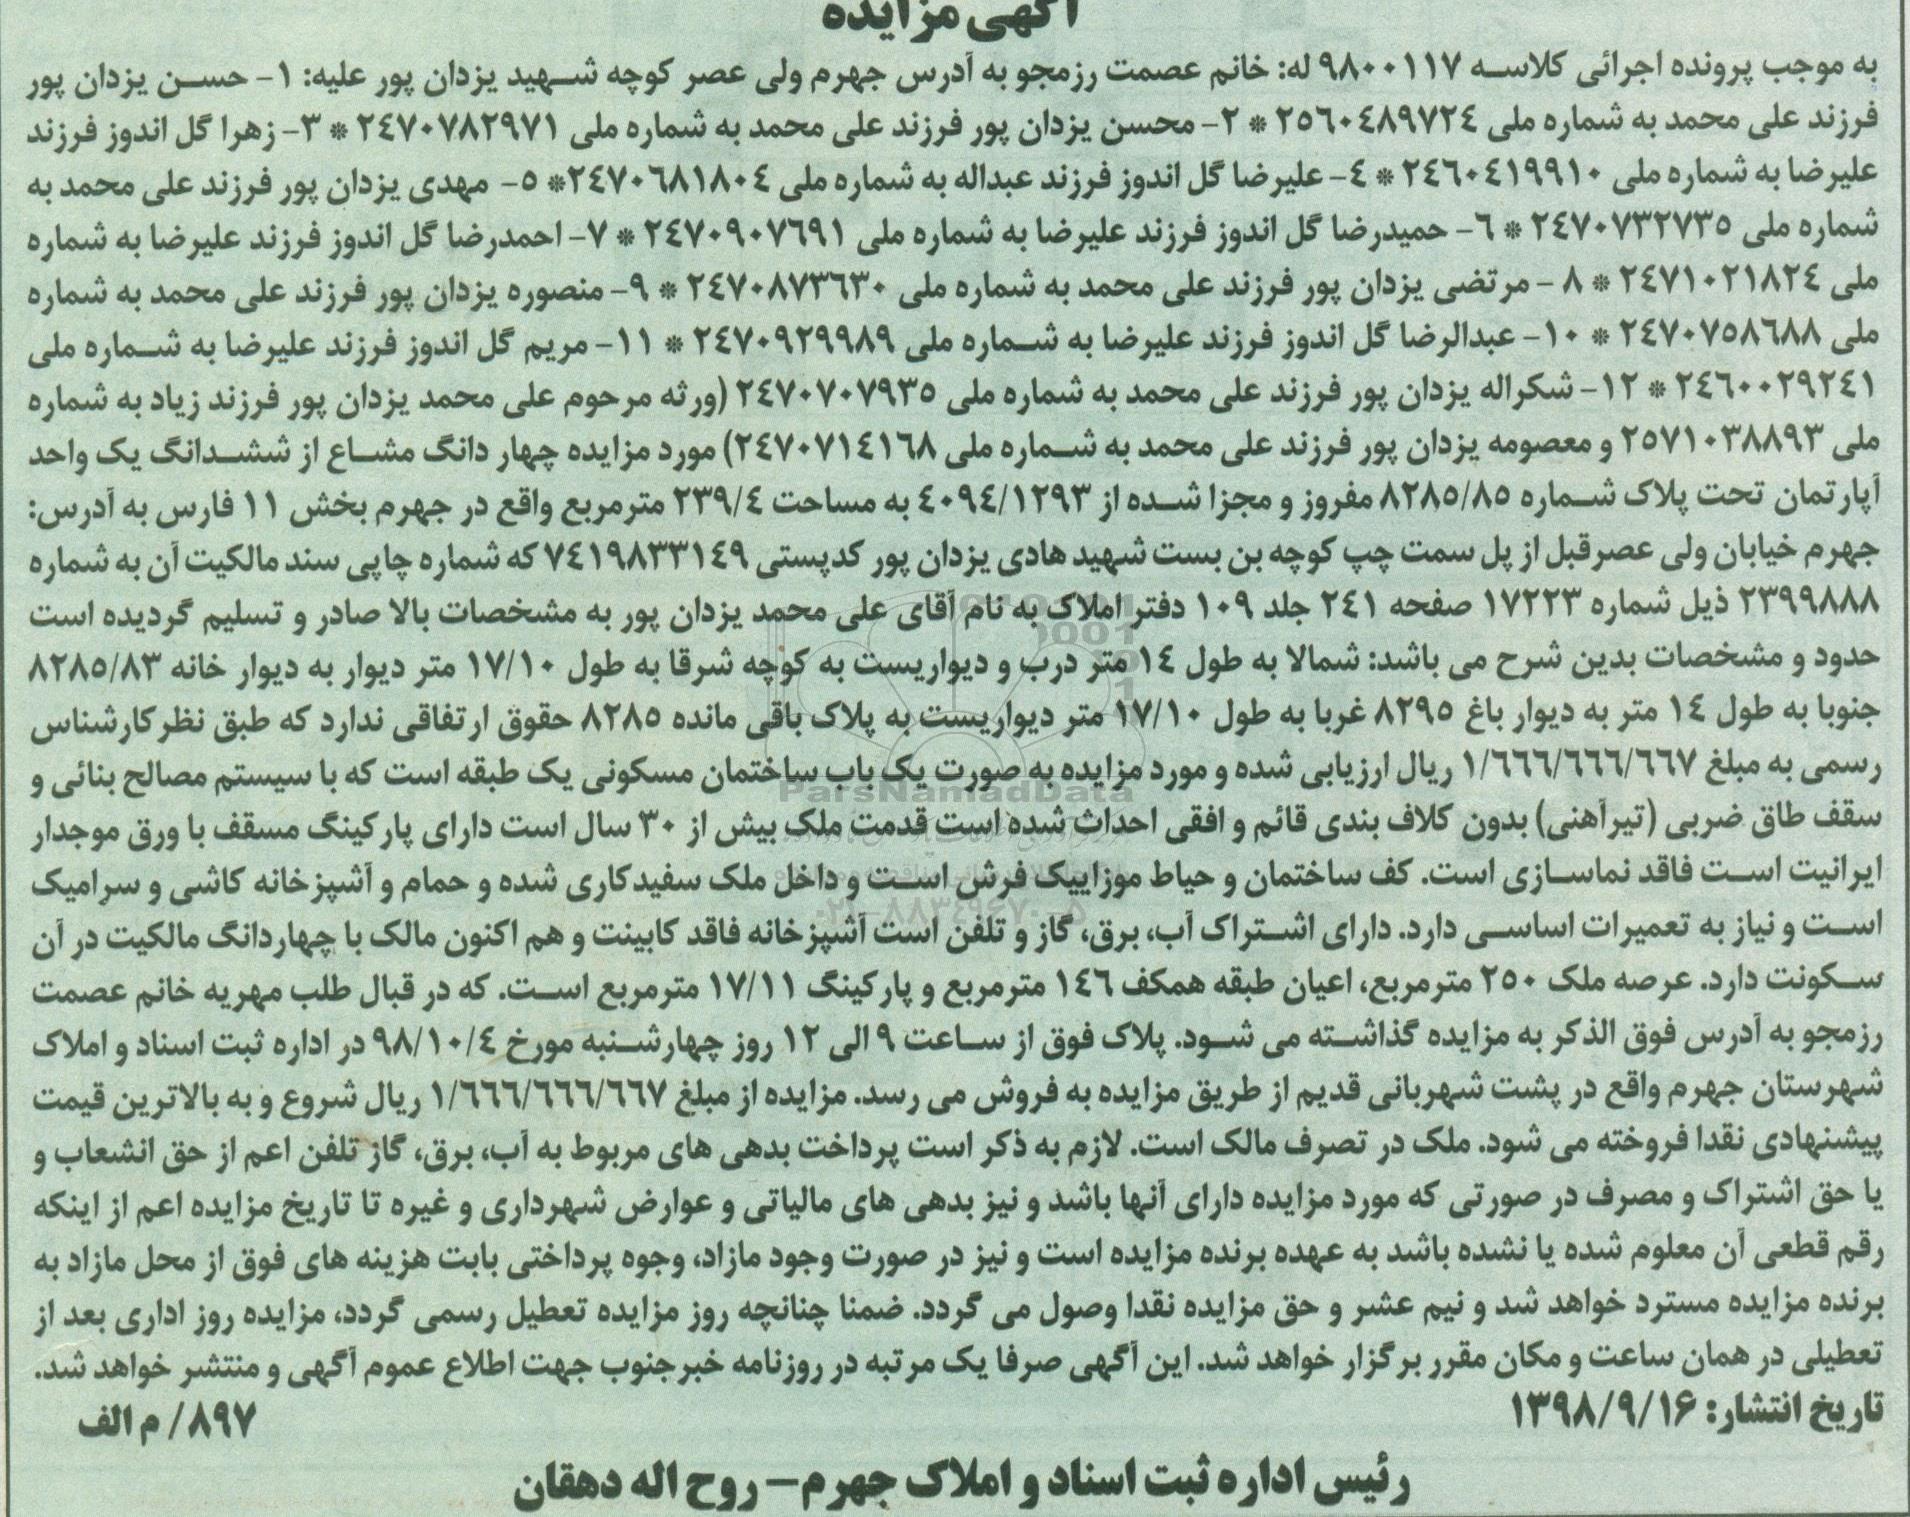 آگهی مزایده
به موجب پرونده اجرائی کلاسه ۹۸۰۰۱۱۷ له: خانم عصمت رزمجو به آدرس جهرم ولی عصر کوچه شهید یزدان پور علیه: ۱- حسن یزدان پور
فرزند علی محمد به شماره ملی ۲۵۶۰۴۸۹۷۲۴ * ۲- محسن یزدان پور فرزند علی محمد به شماره ملی ۲۴۷۰۷۸۲۹۷۱ * ۳- زهرا گل اندوز فرزند
علیرضا به شماره ملی ۲۴۶۰۴۱۹۹۱۰ * ۴- علیرضا گل اندوز فرزند عبداله به شماره ملی ۲۴۷۰۶۸۱۸۰۴* ۵- مهدی یزدان پور فرزند علی محمد به
شماره ملی ۲۴۷۰۷۳۲۷۳۵ * ۶- حمیدرضا گل اندوز فرزند علیرضا به شماره ملی ۲۴۷۰۹۰۷۶۹۱ * ۷- احمدرضا گل اندوز فرزند علیرضا به شماره
ملی ۲۴۷۱۰۲۱۸۲۴ * ۸ - مرتضی یزدان پور فرزند علی محمد به شماره ملی ۲۴۷۰۸۷۳۶۳۰ * ۹- منصوره یزدان پور فرزند علی محمد به شماره
ملی ۲۴۷۰۷۵۸۶۸۸ * ۱۰- عبدالرضا گل اندوز فرزند علیرضا به شماره ملی ۲۴۷۰۹۲۹۹۸۹ * ۱۱- مریم گل اندوز فرزند علیرضا به شماره ملی
۲۴۶۰۰۲۹۲۴۱ * ۱۲- شکراله یزدان پور فرزند علی محمد به شماره ملی ۲۴۷۰۷۰۷۹۳۵ (ورثه مرحوم علی محمد یزدان پور فرزند زیاد به شماره
ملی ۲۵۷۱۰۳۸۸۹۳ و معصومه یزدان پور فرزند علی محمد به شماره ملی ۲۴۷۰۷۱۴۱۶۸) مورد مزایده چهار دانگ مشاع از ششدانگ یک واحد
آپارتمان تحت پلاک شماره ۸۲۸۵/۸۵ مفروز و مجزا شده از ۴۰۹۴/۱۲۹۳ به مساحت ۲۳۹/۴ مترمربع واقع در جهرم بخش ۱۱ فارس به آدرس:
جهرم خیابان ولی عصرقبل از پل سمت چپ کوچه بن بست شهید هادی یزدان پور کدپستی ۷۴۱۹۸۳۳۱۴۹ که شماره چاپی سند مالکیت آن به شماره
۲۳۹۹۸۸۸ ذیل شماره ۱۷۲۲۳ صفحه ۲۴۱ جلد ۱۰۹ دفتر املاک به نام آقای علی محمد یزدان پور به مشخصات بالا صادر و تسلیم گردیده است
حدود و مشخصات بدین شرح می باشد: شمالا به طول ۱۴ متر درب و دیواریست به کوچه شرقا به طول ۱۷/۱۰ متر دیوار به دیوار خانه ۸۲۸۵/۸۳
جنوبا به طول ۱۴ متر به دیوار باغ ۸۲۹۵ غربا به طول ۱۷/۱۰ متر دیواریست به پلاک باقی مانده ۸۲۸۵ حقوق ارتفاقی ندارد که طبق نظرکارشناس
رسمی به مبلغ ۱/۶۶۶/۶۶۶/۶۶۷ ریال ارزیابی شده و مورد مزایده به صورت یک باب ساختمان مسکونی یک طبقه است که با سیستم مصالح بنائی و
سقف طاق ضربی (تیرآهنی) بدون کلاف بندی قائم و افقی احداث شده است قدمت ملک بیش از ۳۰ سال است دارای پارکینگ مسقف با ورق موجدار
ایرانیت است فاقد نماسازی است. کف ساختمان و حیاط موزاییک فرش است و داخل ملک سفیدکاری شده و حمام و آشپزخانه کاشی و سرامیک
است و نیاز به تعمیرات اساسی دارد. دارای اشتراک آب، برق، گاز و تلفن است آشپزخانه فاقد کابینت و هم اکنون مالک با چهاردانگ مالکیت در آن
سکونت دارد. عرصه ملک ۲۵۰ مترمربع، اعیان طبقه همکف ۱۴۶ مترمربع و پارکینگ ۱۷/۱۱ مترمربع است. که در قبال طلب مهریه خانم عصمت
رزمجو به آدرس فوق الذکر به مزایده گذاشته می شود. پلاک فوق از ساعت ۹ الی ۱۲ روز چهارشنبه مورخ ۹۸/۱۰/۴ در اداره ثبت اسناد و املاک
شهرستان جهرم واقع در پشت شهربانی قدیم از طریق مزایده به فروش می رسد. مزایده از مبلغ ۱/۶۶۶/۶۶۶/۶۶۷ ریال شروع و به بالاترین قیمت
پیشنهادی نقدا فروخته می شود. ملک در تصرف مالک است. لازم به ذکر است پرداخت بدهی های مربوط به آب، برق، گاز تلفن اعم از حق انشعاب و
یا حق اشتراک و مصرف در صورتی که مورد مزایده دارای آنها باشد و نیز بدهی های مالیاتی و عوارض شهرداری و غیره تا تاریخ مزایده اعم از اینکه
رقم قطعی آن معلوم شده یا نشده باشد به عهده برنده مزایده است و نیز در صورت وجود مازاد، وجوه پرداختی بابت هزینه های فوق از محل مازاد به
برنده مزایده مسترد خواهد شد و نیم عشر و حق مزایده نقدا وصول می گردد. ضمنا چنانچه روز مزایده تعطیل رسمی گردد، مزایده روز اداری بعد از
تعطیلی در همان ساعت و مکان مقرر برگزار خواهد شد. این آگهی صرفا یک مرتبه در روزنامه خبرجنوب جهت اطلاع عموم آگهی و منتشر خواهد شد.
تاریخ انتشار: ۱۳۹۸/۹/۱۶ ۸۹۷/ م الف
رئیس اداره ثبت اسناد و املاک جهرم – روح اله دهقان
ParsNamadData
۰۲۱-۸۸۳۴۹۶۷۰-۵